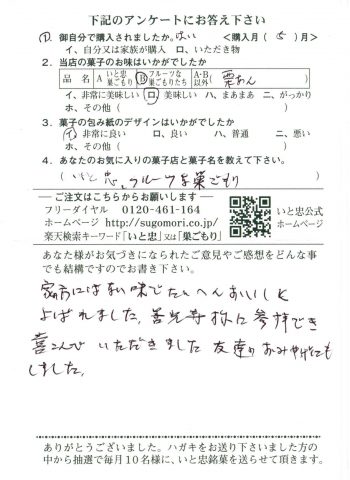 下記のアンケートにお答え下さい
1. 御自分で購入されましたか。はい <購入月( 5 )月>
イ、自分又は家族が購入 ロ、いただき物
2. 当店の菓子のお味はいかがでしたか
品名 A いと忠巣ごもり B フルーツな巣ごもりたち A・B以外 栗あん
イ、非常に美味しい ロ、美味しい ハ、まあまあ ニ、がっかり
ホ、その他 ( )
3. 菓子の包み紙のデザインはいかがでしたか
イ、非常に良い ロ、良い ハ、普通 ニ、悪い
ホ、その他 ( )
4. あなたのお気に入りの菓子店と菓子名を教えて下さい。
( いと忠、フルーツな巣ごもり )
ご注文はこちらからお願いします
フリーダイヤル 0120-461-164
ホームページ http://sugomori.co.jp/
楽天検索キーワード「いと忠」又は「巣ごもり」
いと忠公式
ホームページ
あなた様がお気づきになられたご意見やご感想をどんな事
でも結構ですのでお書き下さい。
にはない味でたいへんおいしく
よばれました。善光寺 に参拝でき
喜こんで いただきました 友達の おみやげにも
しました。
ありがとうございました。ハガキをお送り下さいました方の
中から抽選で毎月10名様に、いと忠銘菓を送らせて頂きます。